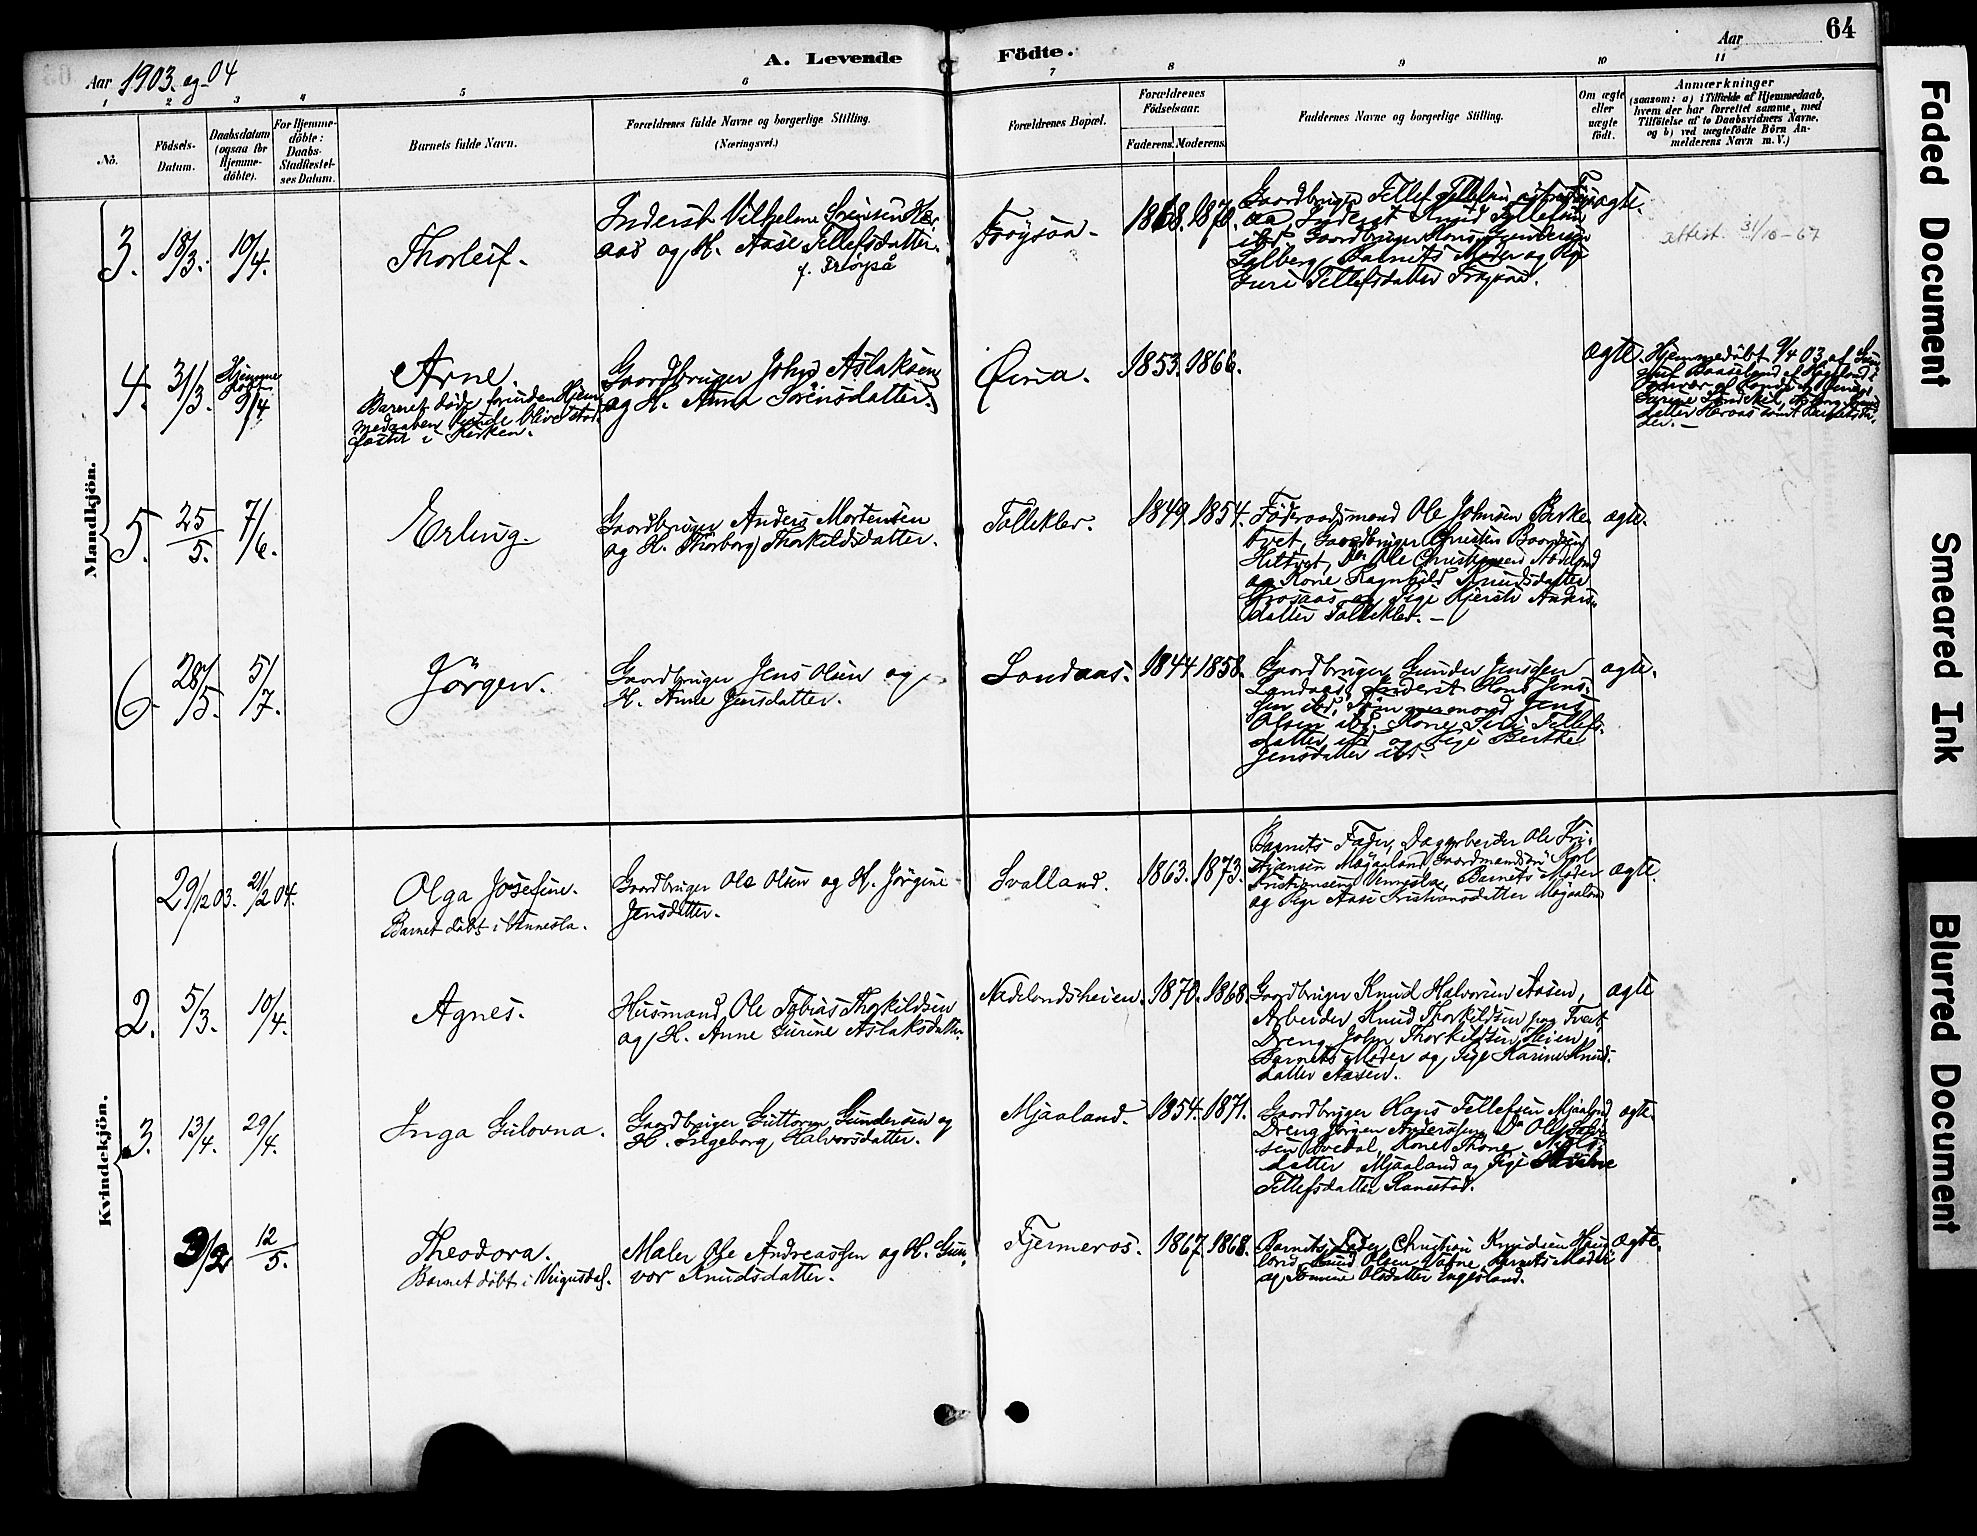 64
A. Levende Födte.
Aar 1903. og 04
Aar
1 2 3 4 5 6 7 8 9 10 11
No.
Födsels-
Datum.
Daabsdatum
(ogsaa for
Hjemme-
döbte).
For Hjemme-
döbte:
Daabs-
Stadfæstel-
ses Datum.
Barnets fulde Navn.
Forældrenes fulde Navne og borgerlige Stilling.
(Næringsvei.)
Forældrenes Bopæl.
Forældrenes
Födselsaar.
Faderens. Moderens.
Faddernes Navne og borgerlige Stilling.
Om ægte
eller
uægte
født.
Anmærkninger
(saasom: a) i Tilfælde af Hjemmedaab,
hvem der har forrettet samme, med
Tilföielse af to Daabsvidners Navne,
og b) ved uægtefödte Börn An-
melderens Navn m. V.)
Mandkjön.
3. 18/3. 10/4.
Thorleif.
Inderst Vilhelm Sörensen Her
aas og H. Aase Tellefsdatter.
f. Fröyså
Fröysaa.
1868. 1870.
Gaardbruger Tellef Tellefsen
Inderst Knud Tellefsen
ibd. Gaardbruger Hans Gundersen
Barnets Moder og Pige
Guri Tellefsdatter Fröysaa.
ægte.
attest. 31/10-67
4. 31/3. Hjemme
9/4
Arne.
Barnet döde forinden Hjem
medaaben kunde blive stad
fæstet i Kirken.
Gaardbruger John Aslaksen
og H. Anna Sörensdatter.
1853. 1866.
ægte
Hjemmedöbt 9/4 03 af
5. 25/5. 7/6.
Erling.
Gaardbruger Anders Mortensen
og H. Thorborg Thorkildsdatter.
Tolleklev.
1849. 1854.
Föderaadsmand Ole Johnsen Birke
tvet, Gaardbruger Christen
Ole Christiansen
og Kone Ragnhild Knudsdatter
og Pige Kjersti Anders-
datter Tolleklev.
ægte.
6. 28/5. 5/7.
Jörgen.
Gaardbruger Jens Olsen og
H. Anne Jensdatter.
Landaas.
1844 1858.
Gaardbruger Gunder Jensen
Landaas, Inderst Hans Jens-
sen ibd, Jens
Olsen ibd. Kone Siri Tellefs-
datter ibd og Pige Berthe
Jensdatter ibd.
ægte.
Kvindekjön.
29/12 03. 21/2 04.
Olga Josefine.
Barnet döbt i Vennesla.
Gaardbruger Ole Olsen og H. Jörgine
Jensdatter.
Svalland.
1863. 1873.
Barnets Fader, Dagarbeider Ole Kri-
stjansen Mojaaland, Gaardmandssön Karl
Kristiansen Vennesla, Barnets Moder
og Pige Aase Kristiansdatter Mojaaland
ægte.
2. 5/3. 10/4.
Agnes.
Husmand Ole Tobias Thorkildsen
og H. Anne Gurine Aslaksdatter.
Nadelandsheien.
1870. 1868.
Gaardbruger Knud Halvorsen Aasen,
Arbeider Knud Thorkildsen
Dreng John Thorkildsen Heien,
Barnets Moder og Pige Karine Knud-
datter Aasen.
ægte
3. 13/4. 29/4.
Inga Gulovna.
Gaardbruger Guttorm Gundersen og
H. Ingeborg Halvorsdatter.
Mjaaland.
1854. 1871.
Gaardbruger Hans Tellefsen Mjaaland
Dreng Jörgen Anderssen, Do Ole
datter Mjaaland og Pige
Tellefsdatter Ramstad.
ægte.
12/5.
Theodora.
Barnet döbt i Veigusdal.
Maler Ole Andreassen og H. Gun
vor Knudsdatter.
Fjermeros.
1867. 1868.
Barnets Fader, Christian Knudsen Haug
land, Knud Olsen Vatne, Barnets Moder
og Olsdatter Engesland.
ægte.
Faded Document
Smeared Ink
Blurred Document